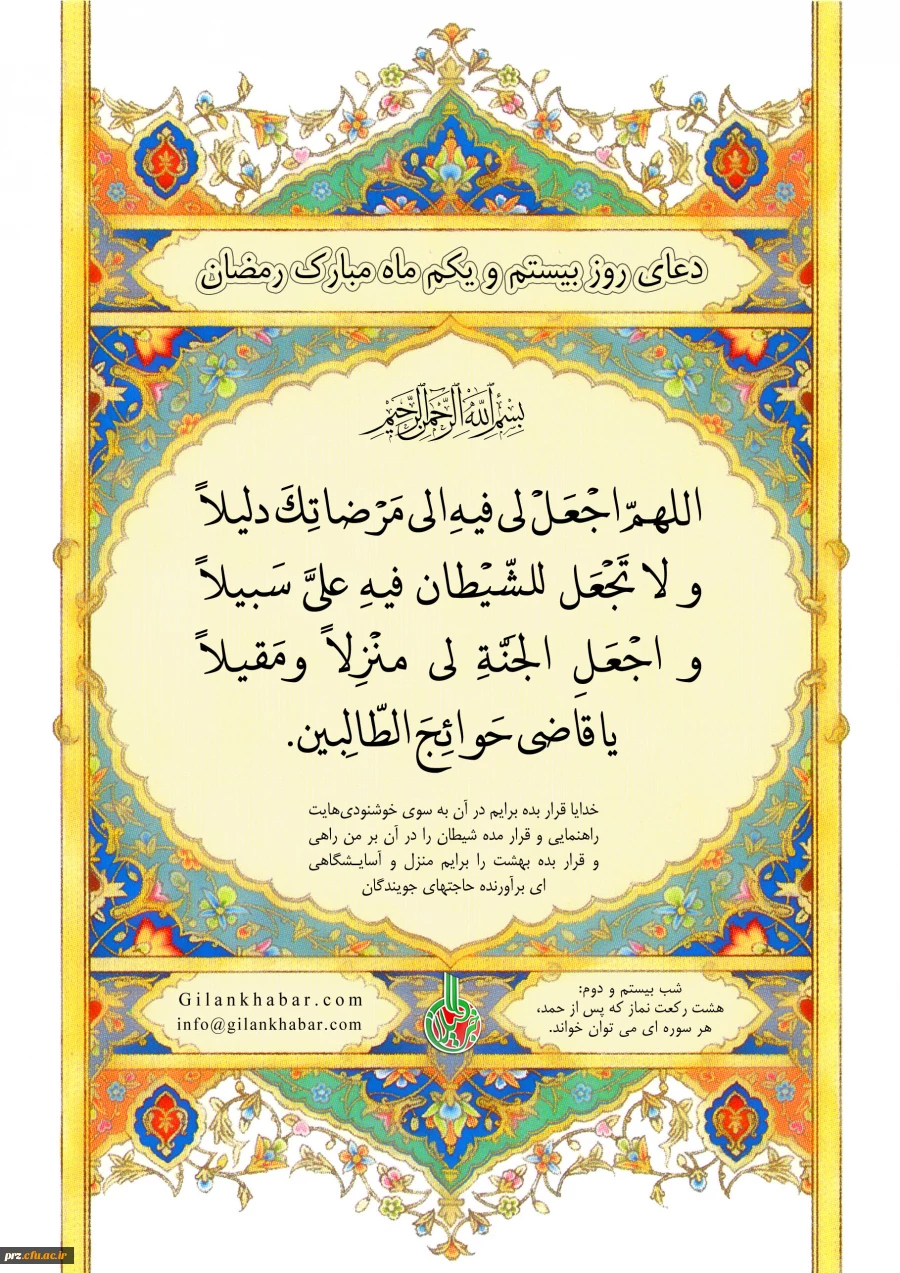 دعای روز بیستم و یکم ماه مبارک رمضان
بِسْمِ اللَّهِ الرَّحْمَنِ الرَّحِيمِ
اللهمّ اجْعَلْ لی فیهِ الی مَرْضاتِكَ دلیلاً
و لا تَجْعَل للشّیْطان فیهِ علیَّ سَبیلاً
و اجْعَلِ الجَنّةِ لی منْزِلاً ومَقیلاً
یا قاضی حَوائِجَ الطّالِبین.
خدایا قرار بده برایم در آن به سوی خوشنودی‌هایت
راهنمایی و قرار مده شیطان را در آن بر من راهی
و قرار بده بهشت را برایم منزل و آسایشگاهی
ای برآورنده حاجتهای جویندگان
شب بیستم و دوم:
هشت رکعت نماز که پس از حمد،
هر سوره ای می توان خواند.
Gilankhabar.com
info@gilankhabar.com
prz.cfu.ac.ir